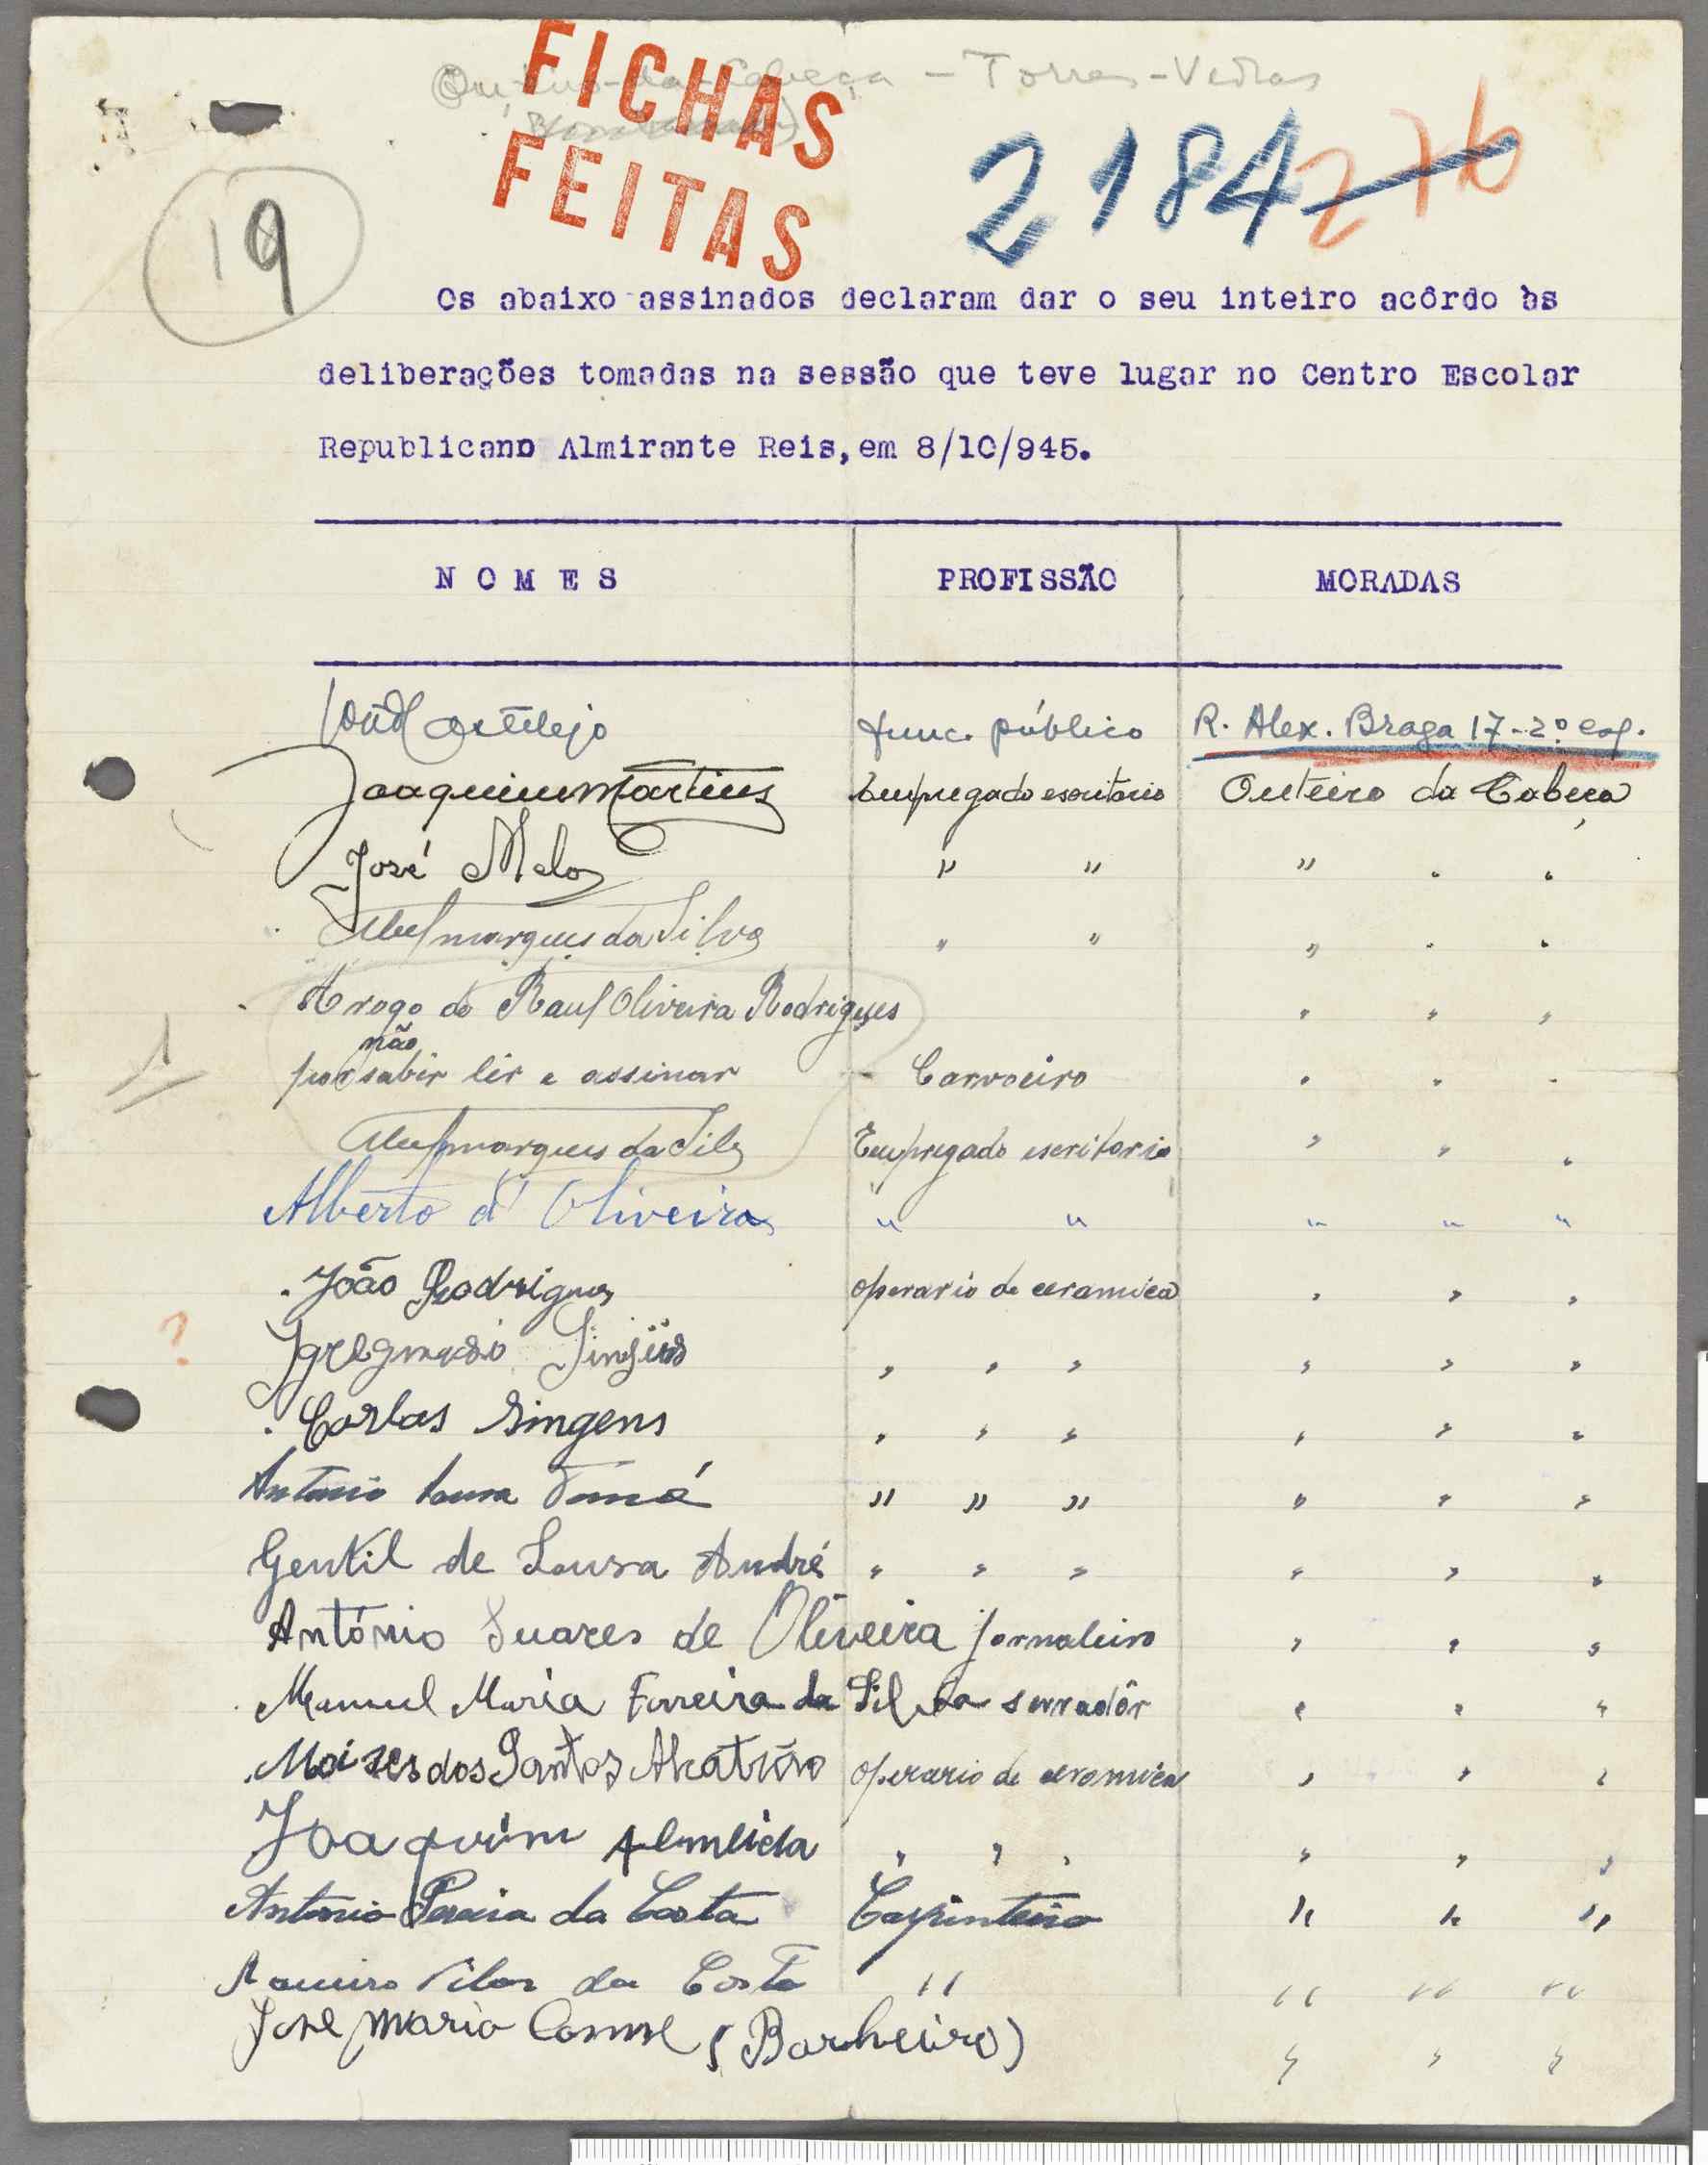 Outeiro-da-Cabeça - Torres-Vedras
FICHAS
FEITAS
19
2184 276
Os abaixo assinados declaram dar o seu inteiro acôrdo às
deliberações tomadas na sessão que teve lugar no Centro Escolar
Republicano Almirante Reis, em 8/10/945.
NOMES PROFISSÃO MORADAS
func. público R. Alex. Braga 17-2º esq.
Joaquim Martins Empregado escritorio Outeiro da Cabeça
José Melo " " " . .
Abel marques da Silva " " " . .
A rogo de Raul Oliveira Rodrigues " " "
não
por saber ler e assinar - Carvoeiro " " "
1
Abel marques da Silva Empregado escritorio " " "
Alberto d'Oliveira " " " " "
João Rodrigues operario de ceramica " " "
? " " " " " "
Carlos Singens " " " " " "
Antonio Tomé " " " " " "
Gentil de Sousa André " " " " " "
António Suares de Oliveira jornaleiro " " "
Manuel Maria Ferreira da Silva serradôr " " "
Moizes dos Santos Alcatrão operario de ceramica " " "
Joaquim Almeida " " " " " "
Antonio Pereira da Costa Carpinteiro " " "
Ramiro Vilar da Costa " " " "
Jose Maria Cosme (Barheiro) " " "